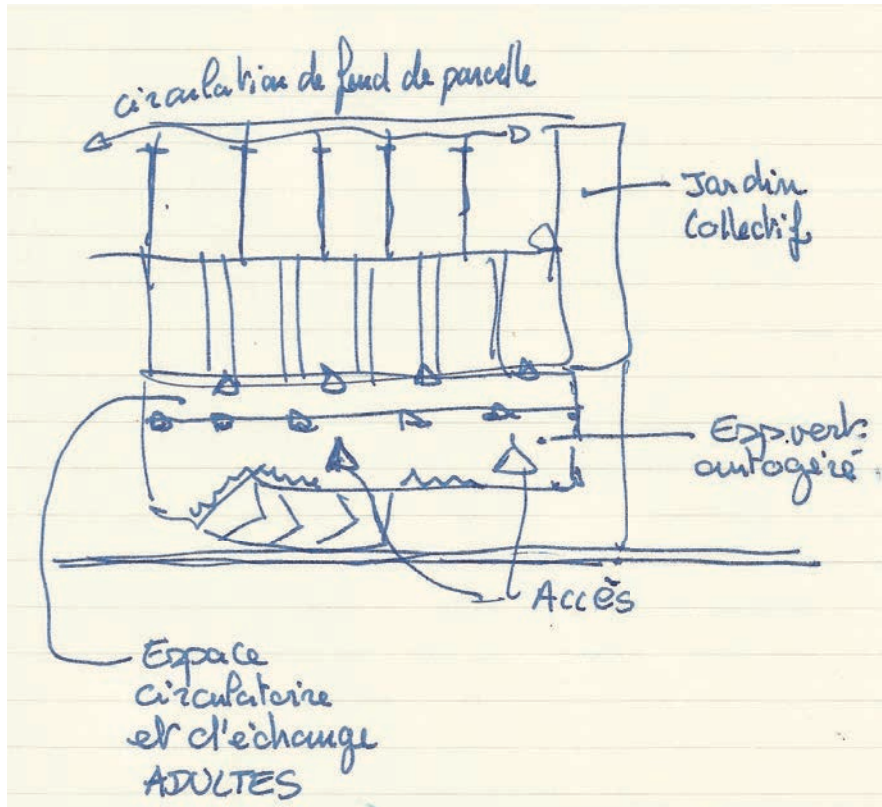 circulation de fond de parcelle
Jardin
Collectif
Esp. vert
autogéré
Accès
Espace
circulatoire
et d'échange
ADULTES